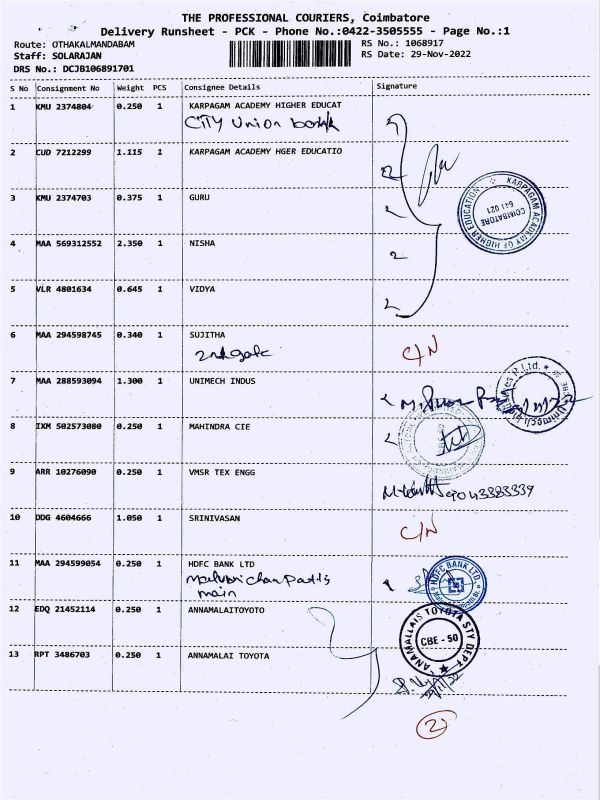 THE PROFESSIONAL COURIERS, Coimbatore
Delivery Runsheet - PCK - Phone No.:0422-3505555 - Page No.:1
Route: OTHAKALMANDABAM
RS No.: 1068917
Staff: SOLARAJAN
RS Date: 29-Nov-2022
DRS No.: DCJB106891701
S No Consignment No Weight PCS Consignee Details Signature
1 KMU 2374804 0.250 1 KARPAGAM ACADEMY HIGHER EDUCAT
CITY Union bank
2 CUD 7212299 1.115 1 KARPAGAM ACADEMY HGER EDUCATIO
KARPAGAM ACADEMY OF HIGHER EDUCATION
COIMBATORE
641 021
3 KMU 2374703 0.375 1 GURU
4 MAA 569312552 2.350 1 NISHA
5 VLR 4801634 0.645 1 VIDYA
6 MAA 294598745 0.340 1 SUJITHA
2nd gate
C/N
7 MAA 288593094 1.300 1 UNIMECH INDUS
8 IXM 502573080 0.250 1 MAHINDRA CIE
9 ARR 10276090 0.250 1 VMSR TEX ENGG
9043383339
10 DDG 4604666 1.050 1 SRINIVASAN
C/N
11 MAA 294599054 0.250 1 HDFC BANK LTD
main
HDFC BANK LTD.
12 EDQ 21452114 0.250 1 ANNAMALAITOYOTO
ANAMALLAIS TOYOTA STY DEPT
CBE - 50
13 RPT 3486703 0.250 1 ANNAMALAI TOYOTA
2